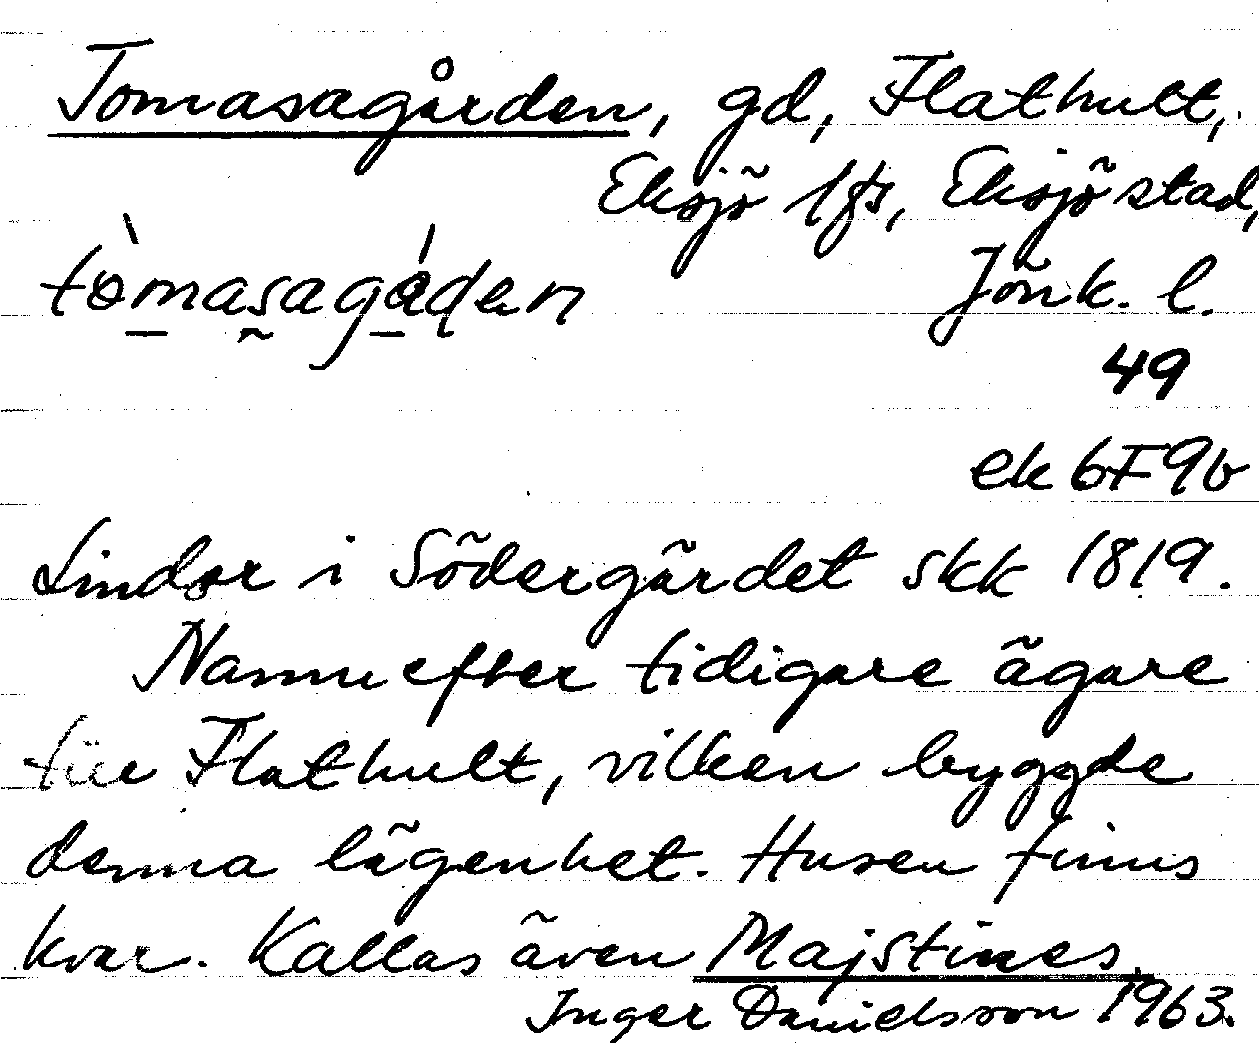 Tomasagården, gd, Flathult,
Eksjö lfs, Eksjö stad,
tòmasagáden Jönk. l.
49
ek 6F9b
Lindor i Södergärdet skk 1819.
Namn efter tidigare ägare
till Flathult, vilken byggde
denna lägenhet. Husen finns
kvar. Kallas även Majstines.
Inger Danielsson 1963.